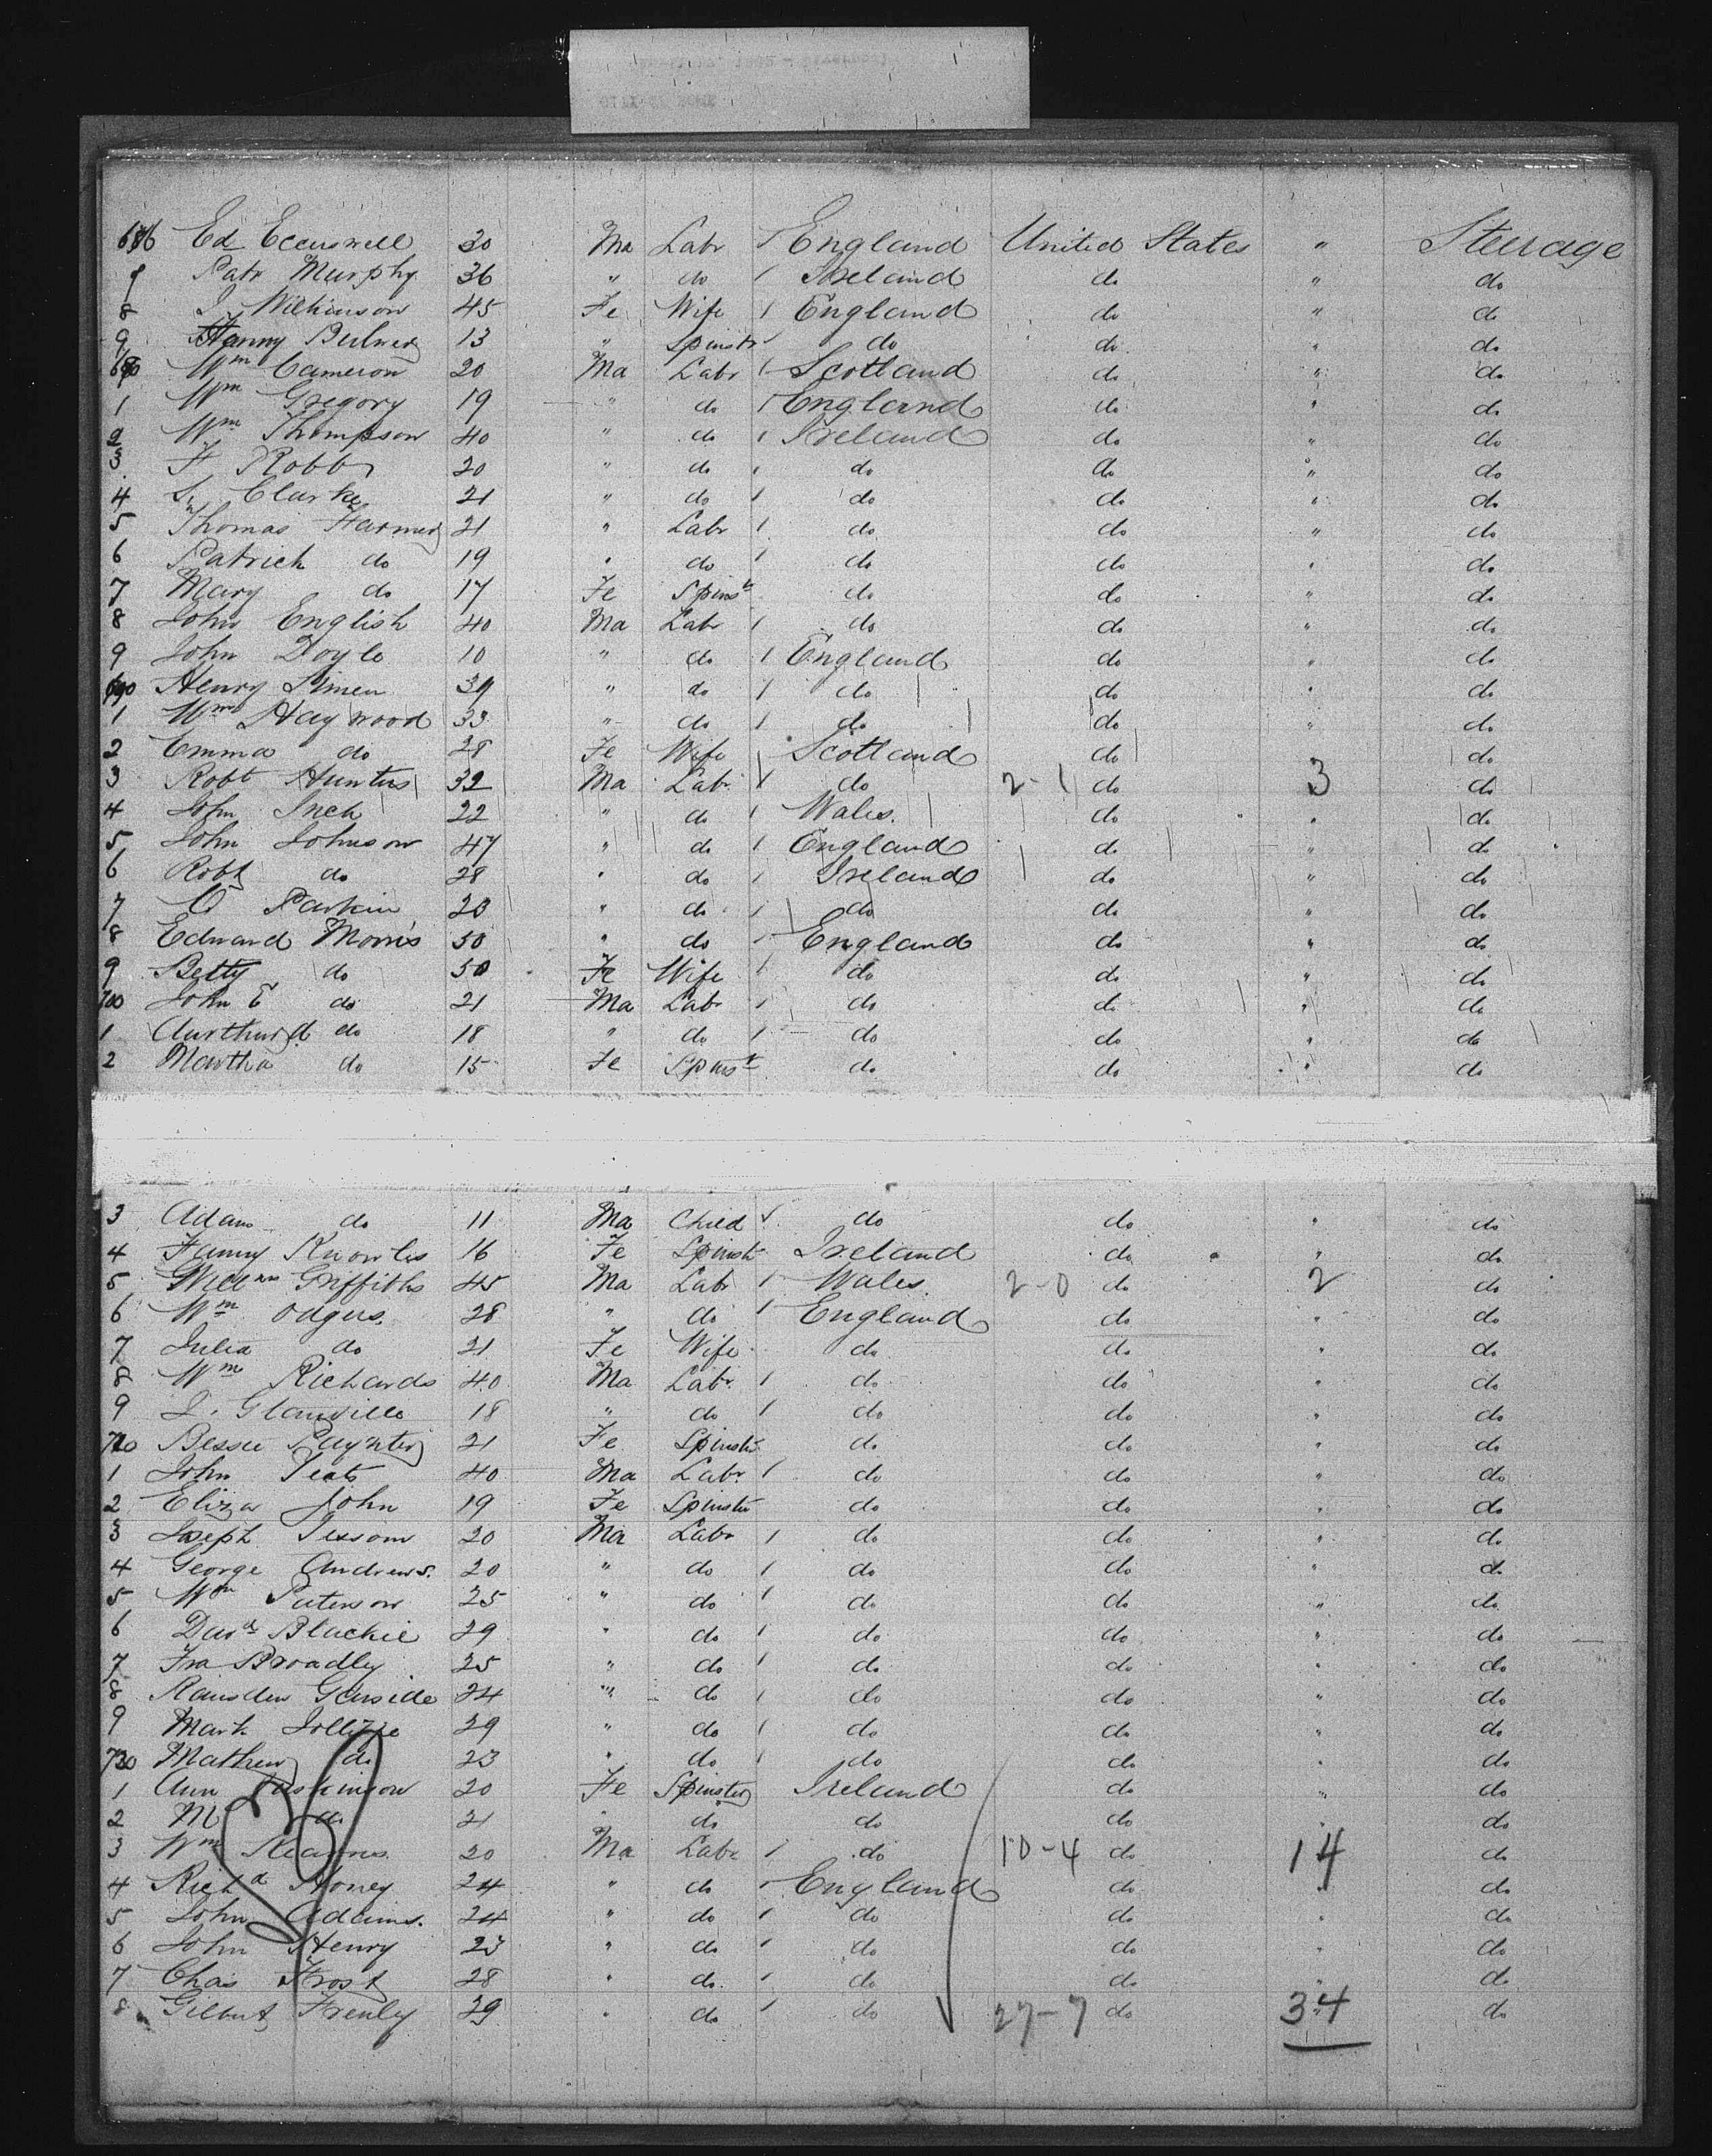 686 Ed Eccuswell 30 Ma Labr England United States " Steerage
7 Patr Murphy 36 " do Ireland do " do
8 J Wilkinson 45 Fe Wife England do " do
9 Fanny Bulmer 13 " Spinstr do do " do
680 Wm Cameron 20 Ma Labr Scotland do " do
1 Wm Gregory 19 " do England do " do
2 Wm Thompson 40 " do Ireland do " do
3 F Robb 20 " do do do " do
4 S. Clarke 21 " do do do " do
5 Thomas Farmer 21 " Labr do do " do
6 Patrick do 19 " do do do " do
7 Mary do 17 Fe Spinstr do do " do
8 John English 40 Ma Labr do do " do
9 John Doyle 10 " do England do " do
690 Henry Simen 39 " do do do " do
1 Wm Haywood 33 " do do do " do
2 Emma do 28 Fe Wife Scotland do do
3 Robt Hunter 32 Ma Labr do 2-1 do 3 do
4 John Inch 22 " do Wales. do " do
5 John Johnson 47 " do England do " do
6 Robt do 28 " do Ireland do " do
7 O Parkin 20 " do do do " do
8 Edward Morris 50 " do England do " do
9 Betty do 50 Fe Wife do do " do
700 John E do 21 Ma Labr do do " do
1 Aurthur do 18 " do do do " do
2 Martha do 15 Fe Spinstr do do " do
3 Adam do 11 Ma Child do do " do
4 Fanny Knowles 16 Fe Spinstr Ireland do " do
5 Willm Griffiths 45 Ma Labr Wales. 2-0 do 2 do
6 Wm Odgers. 28 " do England do " do
7 Julia do 21 Fe Wife do do " do
8 Wm Richards 40 Ma Labr do do " do
9 J. Glanville 18 " do do do " do
710 Bessie Paynter 21 Fe Spinstr do do " do
1 John Yeats 40 Ma Labr do do " do
2 Eliza John 19 Fe Spinstr do do " do
3 Joseph 20 Ma Labr do do " do
4 George Andrews. 20 " do do do " do
5 Wm Paterson 25 " do do do " do
6 Davd Blackie 29 " do do do " do
7 Fra Broadly 25 " do do do " do
8 Ramsden Garside 24 " do do do " do
9 Mark Jolliffe 29 " do do do " do
720 Mathew do 23 " do do do " do
1 Ann 20 Fe Spinster Ireland do " do
2 M do 21 " do do do do
3 Wm Kearns. 20 Ma Labr do 10-4 do 14 do
4 Richd Honey 24 " do England do " do
5 John Adams. 24 " do do do " do
6 John Henry 23 " do do do " do
7 Chas Frost 28 " do do do " do
8 Gilbert Frenly 29 " do do 27-7 do 34 do